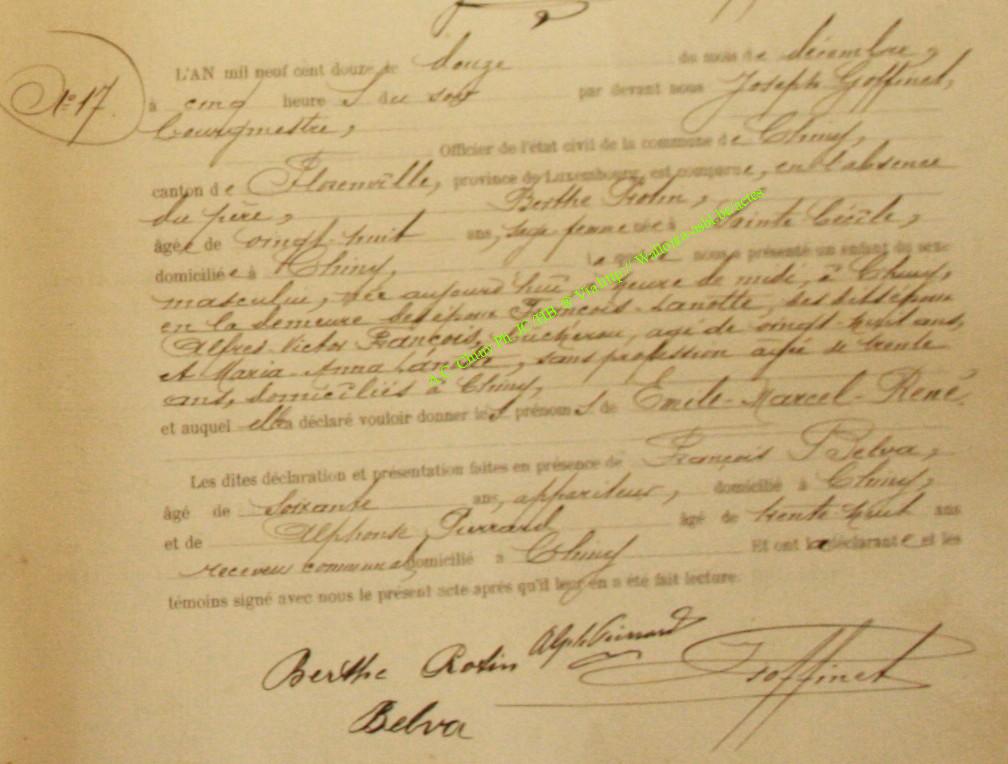 N° 17.
L'AN mil neuf cent douze, le douze du mois de décembre,
à cinq heures du soir par devant nous Joseph Goffinet,
bourgmestre,
Officier de l'état civil de la commune de Chiny,
canton de Florenville, province de Luxembourg, est comparue, en l'absence
du père, Berthe Rotin,
âgée de vingt-huit ans, sage femme née à Sainte Cécile,
domiciliée à Chiny, nous a présenté un enfant du sexe
masculin, né aujourd'hui à heure de midi, à Chiny,
en la demeure des époux François-Lanotte, des dits époux
Alfred-Victor François, bucheron, âgé de vingt-huit ans,
et Maria-Anna Lanotte, sans profession âgée de trente
ans, domiciliés à Chiny,
et auquel elle a déclaré vouloir donner les prénoms de Emile-Marcel-René.
Les dites déclaration et présentation faites en présence de François Belva,
âgé de soixante ans, appariteur, domicilié à Chiny,
et de Alphonse Pierrard âgé de trente-huit ans
receveur communal, domicilié à Chiny Et ont la déclarante et les
témoins signé avec nous le présent acte après qu'il leur en a été fait lecture.
Berthe Rotin Alph Pierrard Goffinet
Belva
A.G. Chiny Ph. JC /HB @ Via http:// Wallonia-asbl.be/actes